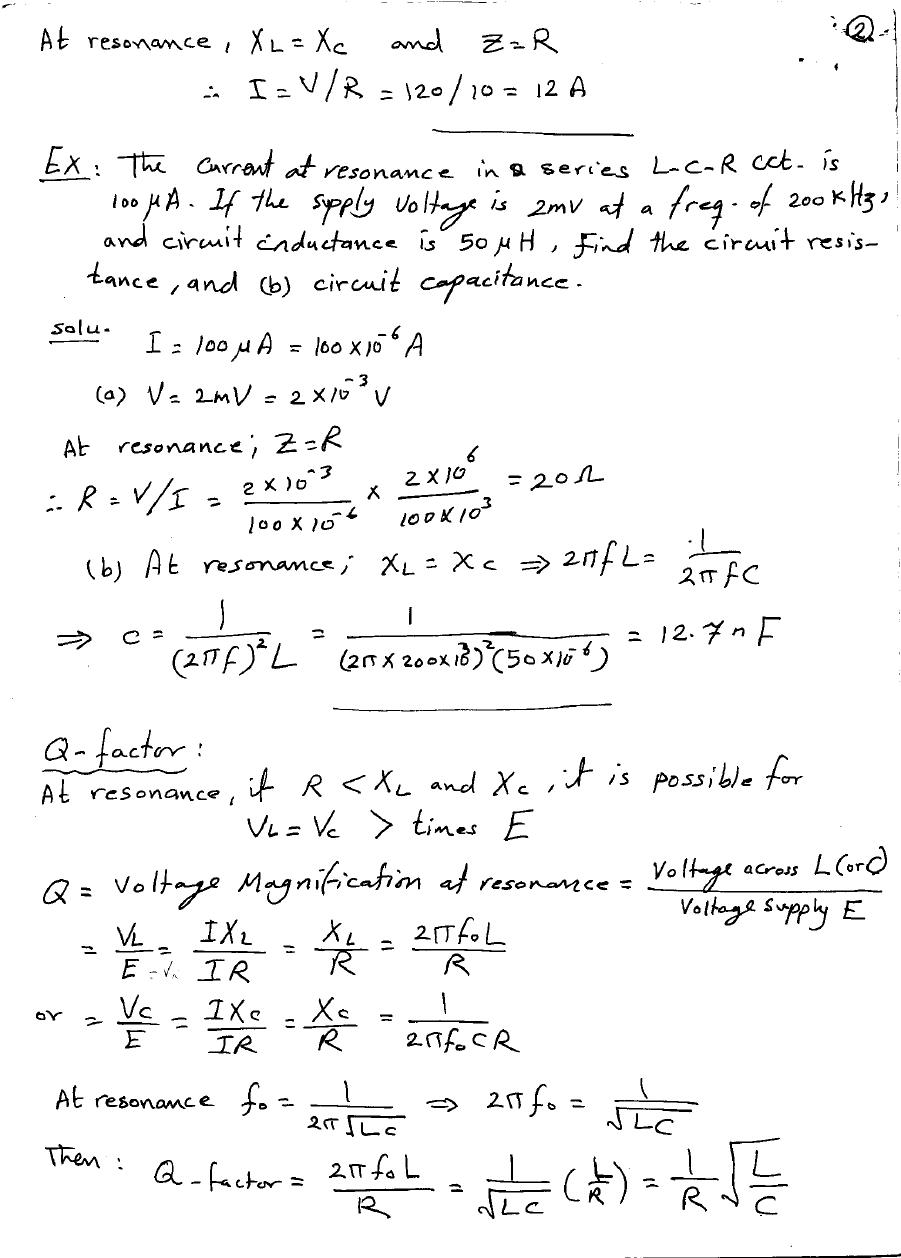 ②
At resonance, XL = Xc and Z = R
∴ I = V/R = 120/10 = 12 A
Ex: The Current at resonance in a series L-C-R cct. is
100 μA. If the supply voltage is 2mV at a freq. of 200 KHz,
and circuit inductance is 50 μH, Find the circuit resis-
tance, and (b) circuit capacitance.
solu. I = 100 μA = 100 x 10⁻⁶ A
(a) V = 2mV = 2 x 10⁻³ V
At resonance; Z = R
∴ R = V/I = 2 x 10⁻³ / 100 x 10⁻⁶ x 2 x 10⁶ / 100 x 10³ = 20 Ω
(b) At resonance; XL = Xc ⇒ 2πfL = 1 / 2πfC
⇒ C = 1 / (2πf)²L = 1 / (2π x 200 x 10³)²(50 x 10⁻⁶) = 12.7 nF
Q-factor:
At resonance, if R < XL and Xc, it is possible for
VL = Vc > times E
Q = Voltage Magnification at resonance = Voltage across L (or C) / Voltage Supply E
= VL / E = IXL / IR = XL / R = 2πf₀L / R
or = Vc / E = IXc / IR = Xc / R = 1 / 2πf₀CR
At resonance f₀ = 1 / 2π√LC ⇒ 2πf₀ = 1 / √LC
Then: Q-factor = 2πf₀L / R = 1 / √LC (L / R) = 1 / R √L / C